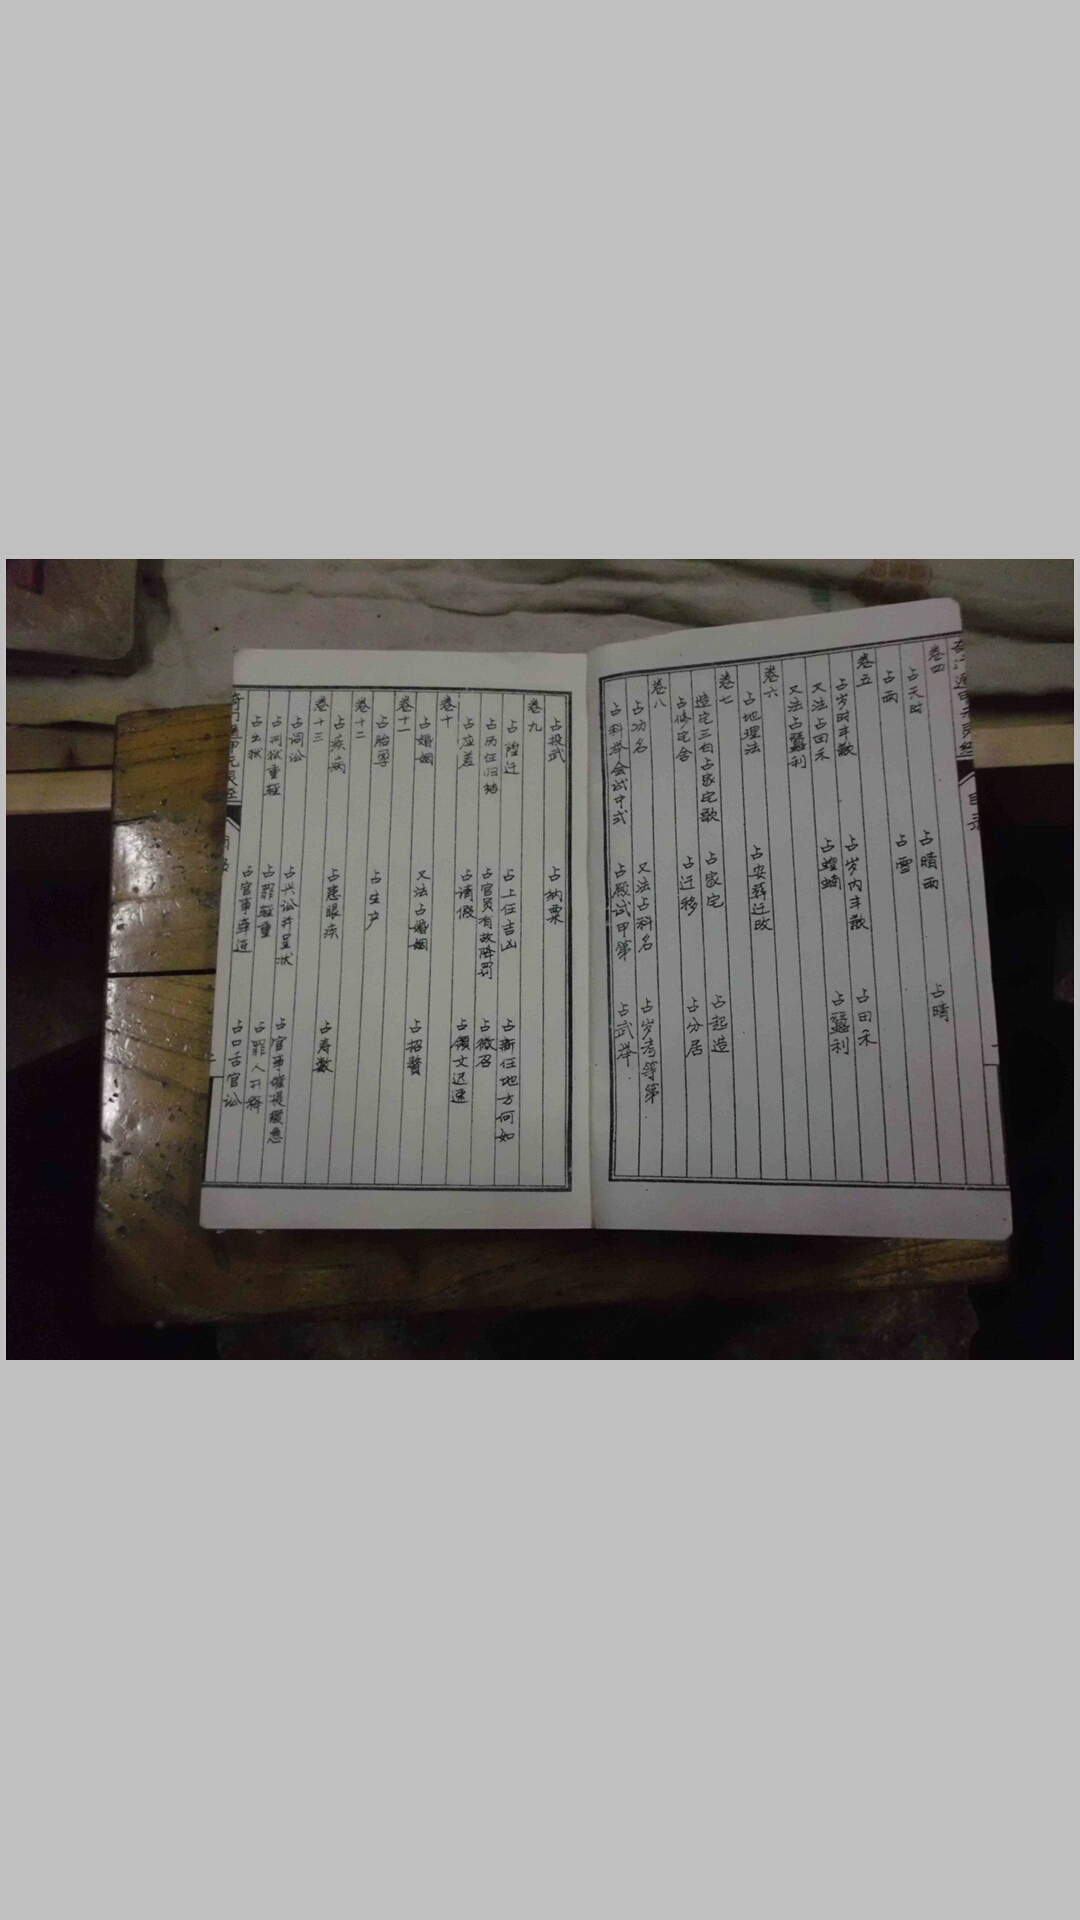 奇门遁甲元灵经 目录
卷四
占天时 占晴雨 占晴
占雨 占雪
卷五
占岁时丰歉 占岁内丰歉 占田禾
又法占田禾 占蝗蝻 占蚕利
又法占蚕利
卷六
占地理法 占安葬迁改
卷七
造宅三白占家宅歌 占家宅 占起造
占修宅舍 占迁移 占分居
卷八
占功名 又法占科名 占岁考等第
占科举会试中式 占殿试甲第 占武举
占投武 占纳粟
卷九
占陞迁 占上任吉凶 占新任地方何如
占历任归结 占官员有故降罚 占徵召
占应差 占请假 占领文迟速
卷十
占婚姻 又法占婚姻 占招赘
卷十一
占胎孕 占生产
卷十二
占疾病 占患眼疾 占寿数
卷十三
占词讼 占兴讼并呈状 占官事催提缓急
占刑狱重轻 占罪轻重 占罪人开释
占出狱 占官事牵连 占口舌官讼
奇门遁甲元灵经
二